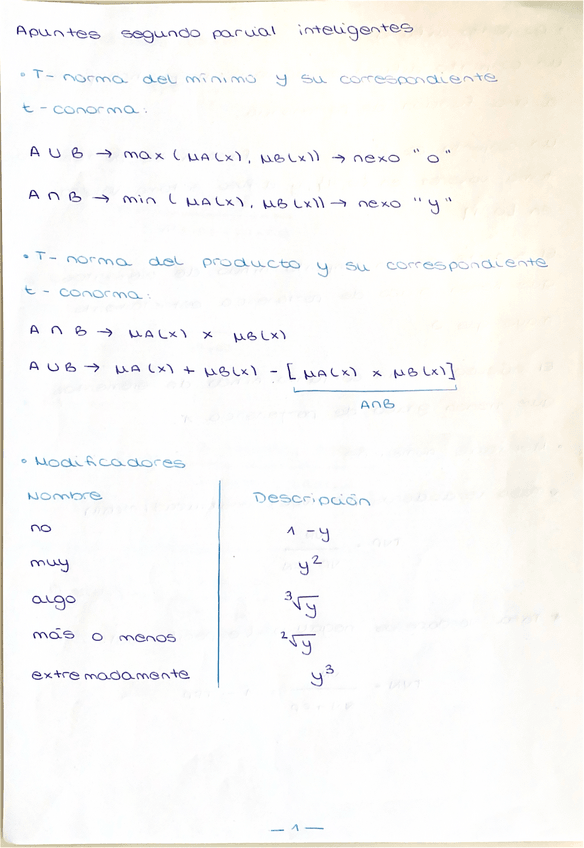 Apuntes segundo parcial inteligentes
• T-norma del mínimo y su correspondiente
t-conorma:
A ∪ B → max (μA(x), μB(x)) → nexo "o"
A ∩ B → min (μA(x), μB(x)) → nexo "y"
• T-norma del producto y su correspondiente
t-conorma:
A ∩ B → μA(x) x μB(x)
A ∪ B → μA(x) + μB(x) - [μA(x) x μB(x)]
A∩B
• Modificadores
Nombre Descripción
no 1 - y
muy y²
algo ³√y
más o menos ²√y
extremadamente y³
— 1 —